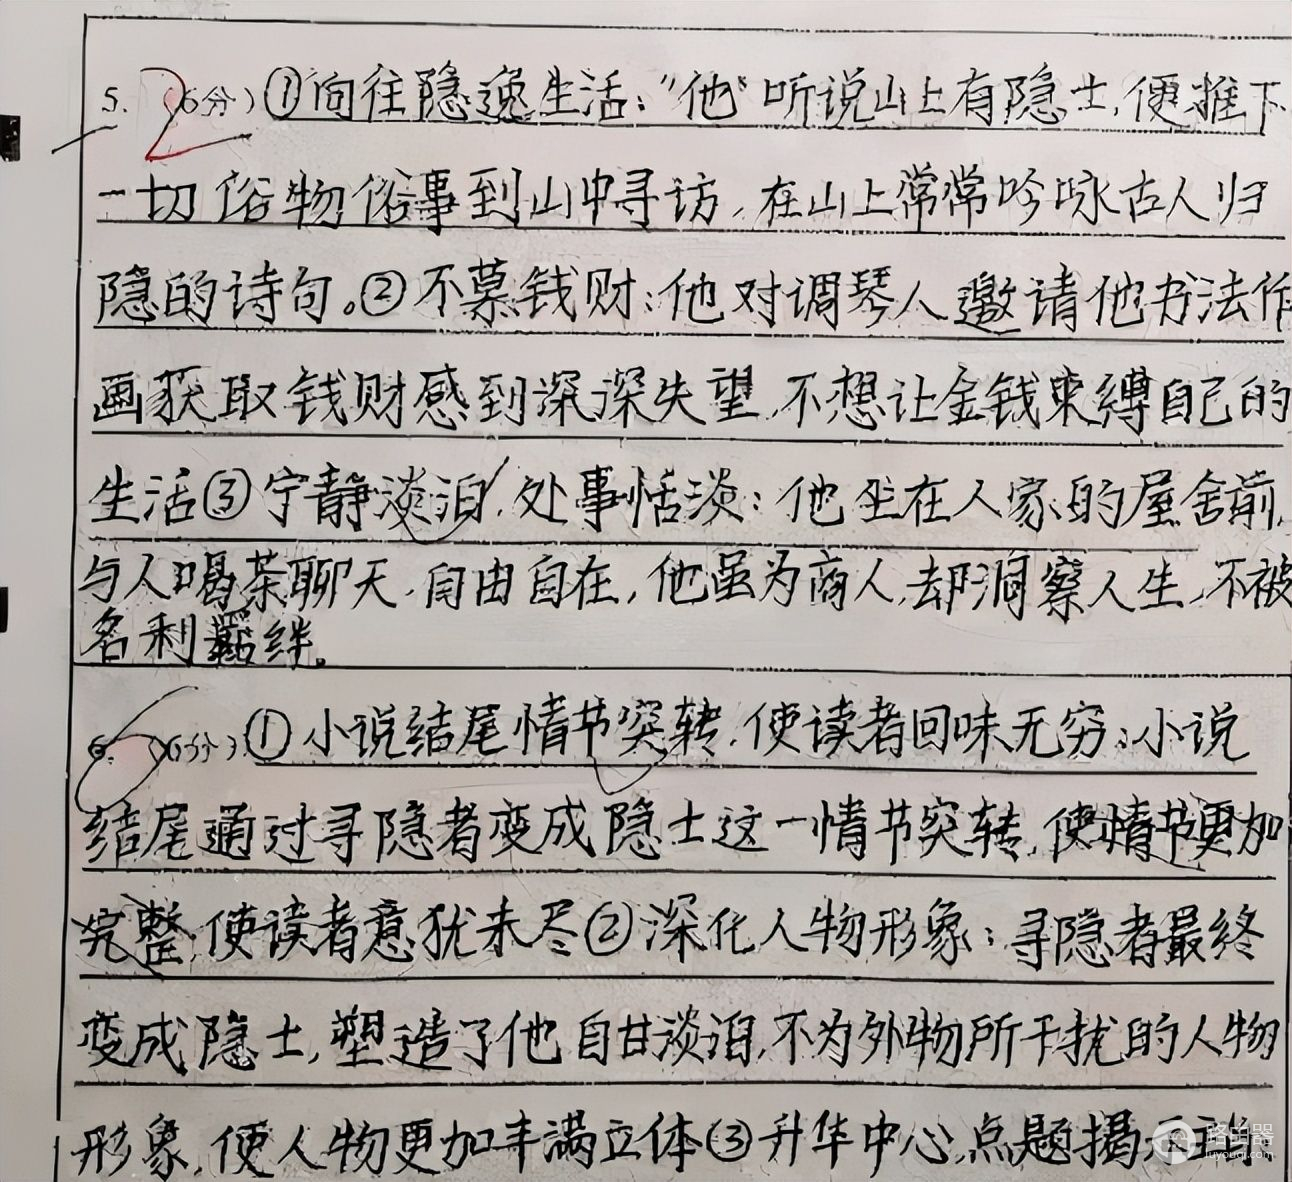 5. (6分)①向往隐逸生活:"他"听说山上有隐士,便推下
一切俗物俗事到山中寻访,在山上常常吟咏古人归
隐的诗句。②不慕钱财:他对调琴人邀请他书法作
画获取钱财感到深深失望,不想让金钱束缚自己的
生活③宁静淡泊,处事恬淡:他坐在人家的屋舍前,
与人喝茶聊天,自由自在,他虽为商人,却洞察人生,不被
名利羁绊。
6. (6分)①小说结尾情节突转,使读者回味无穷:小说
结尾通过寻隐者变成隐士这一情节突转,使情节更加
完整,使读者意犹未尽②深化人物形象:寻隐者最终
变成隐士,塑造了他自甘淡泊,不为外物所干扰的人物
形象,使人物更加丰满立体③升华中心,点题揭示主
路由器
luyouqi.com